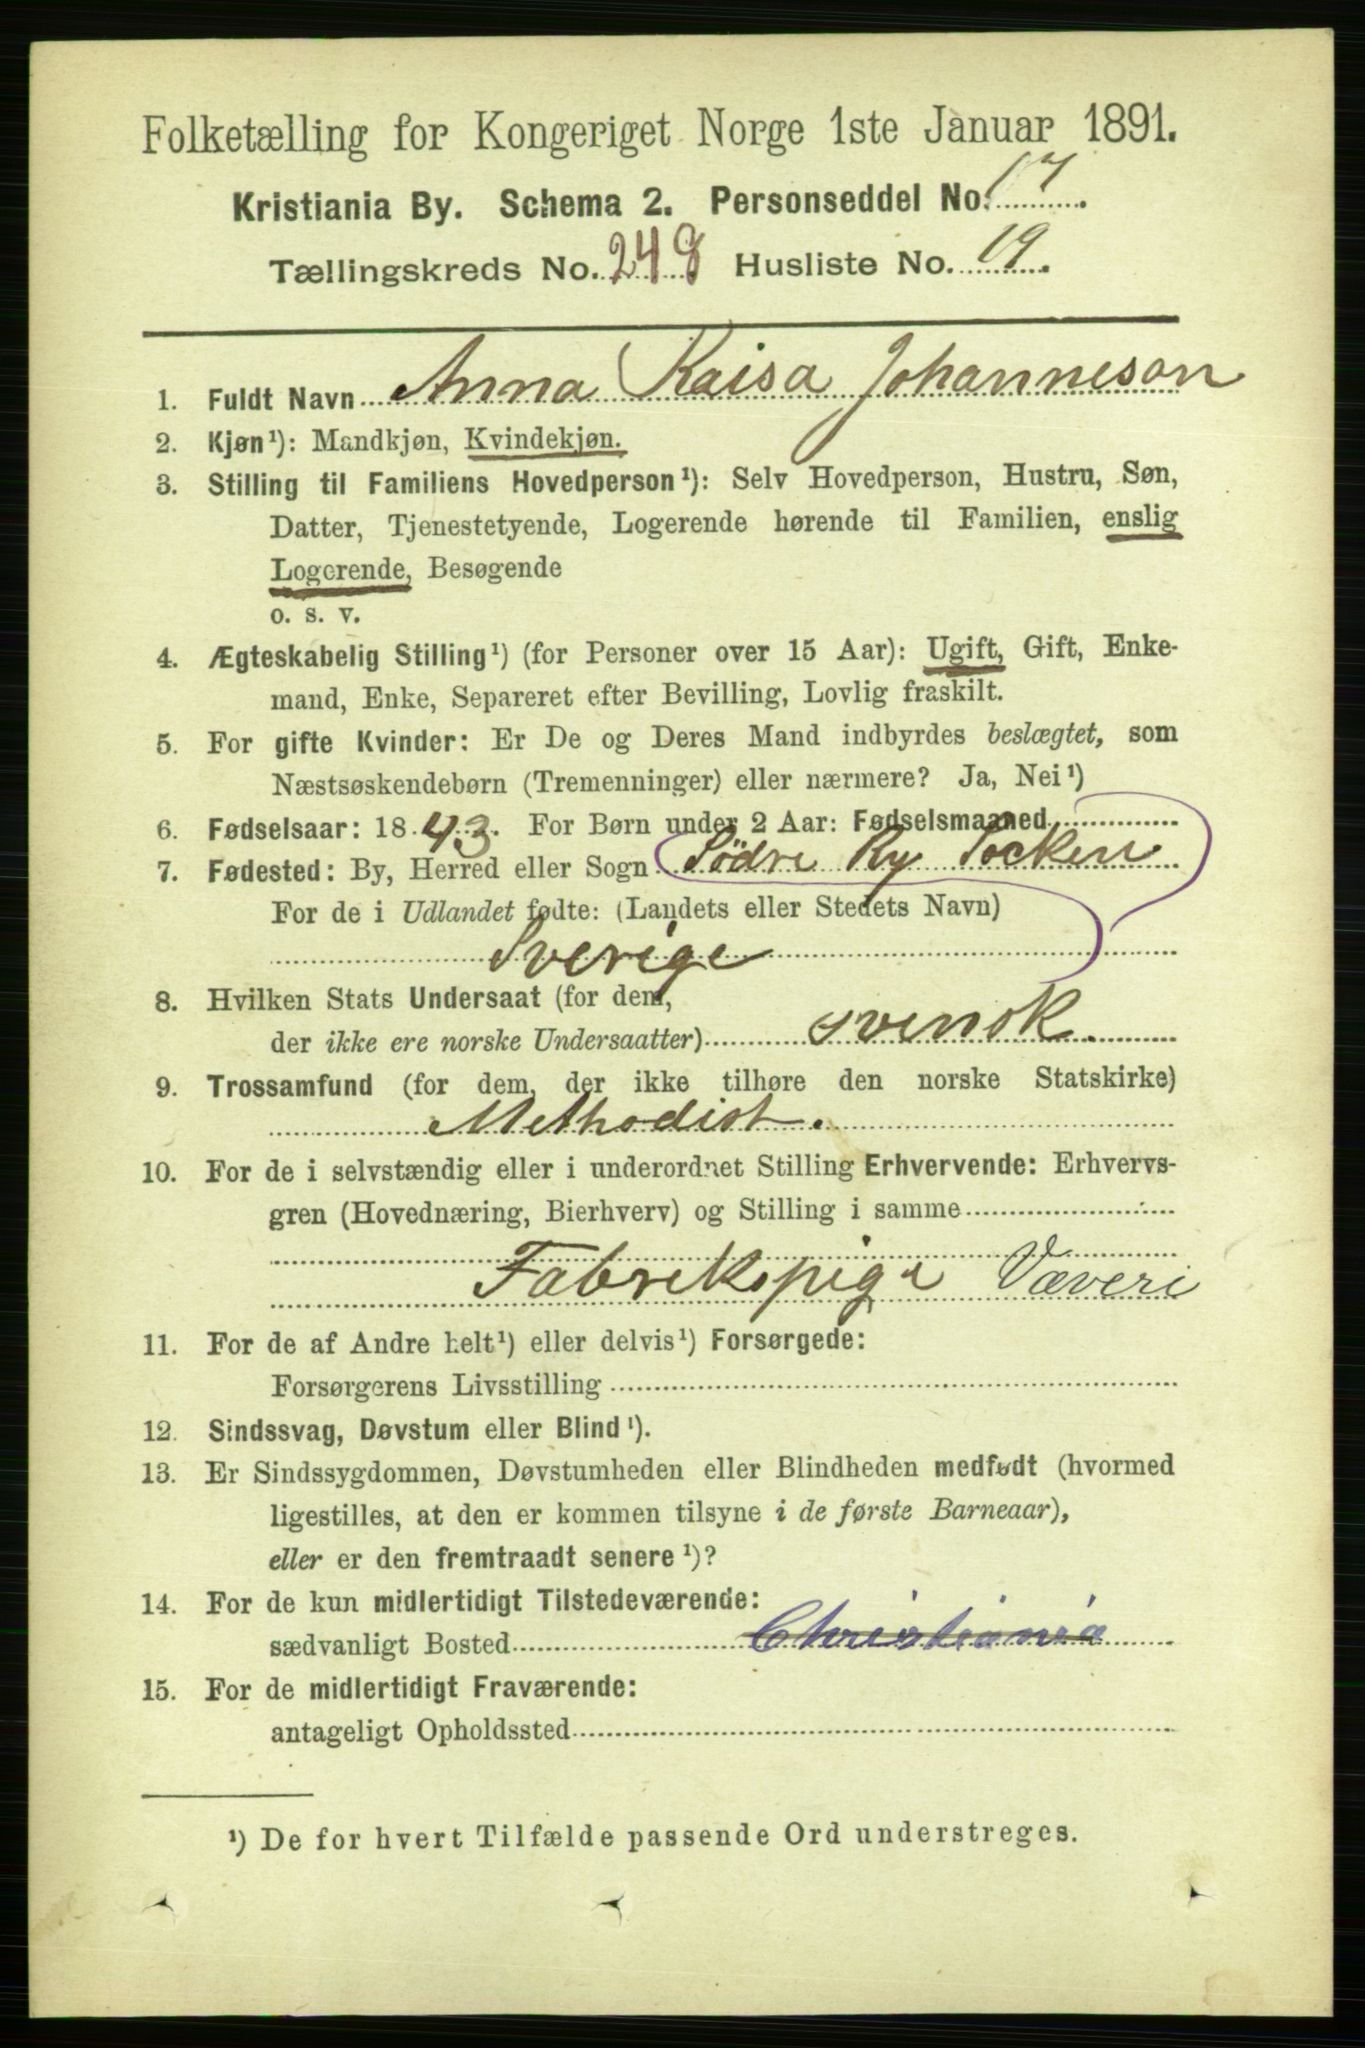 Folketælling for Kongeriget Norge 1ste Januar 1891.
Kristiania By. Schema 2. Personseddel No. 17.
Tællingskreds No. 248 Husliste No. 19.
1. Fuldt Navn Anna Kaisa Johanneson
2. Kjøn¹): Mandkjøn, Kvindekjøn.
3. Stilling til Familiens Hovedperson¹): Selv Hovedperson, Hustru, Søn,
Datter, Tjenestetyende, Logerende hørende til Familien, enslig
Logerende, Besøgende
o. s. v.
4. Ægteskabelig Stilling¹) (for Personer over 15 Aar): Ugift, Gift, Enke-
mand, Enke, Separeret efter Bevilling, Lovlig fraskilt.
5. For gifte Kvinder: Er De og Deres Mand indbyrdes beslægtet, som
Næstsøskendebørn (Tremenninger) eller nærmere? Ja, Nei¹)
6. Fødselsaar: 1843. For Børn under 2 Aar: Fødselsmaaned
7. Fødested: By, Herred eller Sogn Södre Ry Socken
For de i Udlandet fødte: (Landets eller Stedets Navn)
Sverige
8. Hvilken Stats Undersaat (for dem,
der ikke ere norske Undersaatter) svensk.
9. Trossamfund (for dem, der ikke tilhøre den norske Statskirke)
Methodist.
10. For de i selvstændig eller i underordnet Stilling Erhvervende: Erhvervs-
gren (Hovednæring, Bierhverv) og Stilling i samme
Fabrikspige Væveri
11. For de af Andre helt¹) eller delvis¹) Forsørgede:
Forsørgerens Livsstilling
12. Sindssvag, Døvstum eller Blind¹).
13. Er Sindssygdommen, Døvstumheden eller Blindheden medfødt (hvormed
ligestilles, at den er kommen tilsyne i de første Barneaar),
eller er den fremtraadt senere¹)?
14. For de kun midlertidigt Tilstedeværende:
sædvanligt Bosted Christiania
15. For de midlertidigt Fraværende:
antageligt Opholdssted
¹) De for hvert Tilfælde passende Ord understreges.